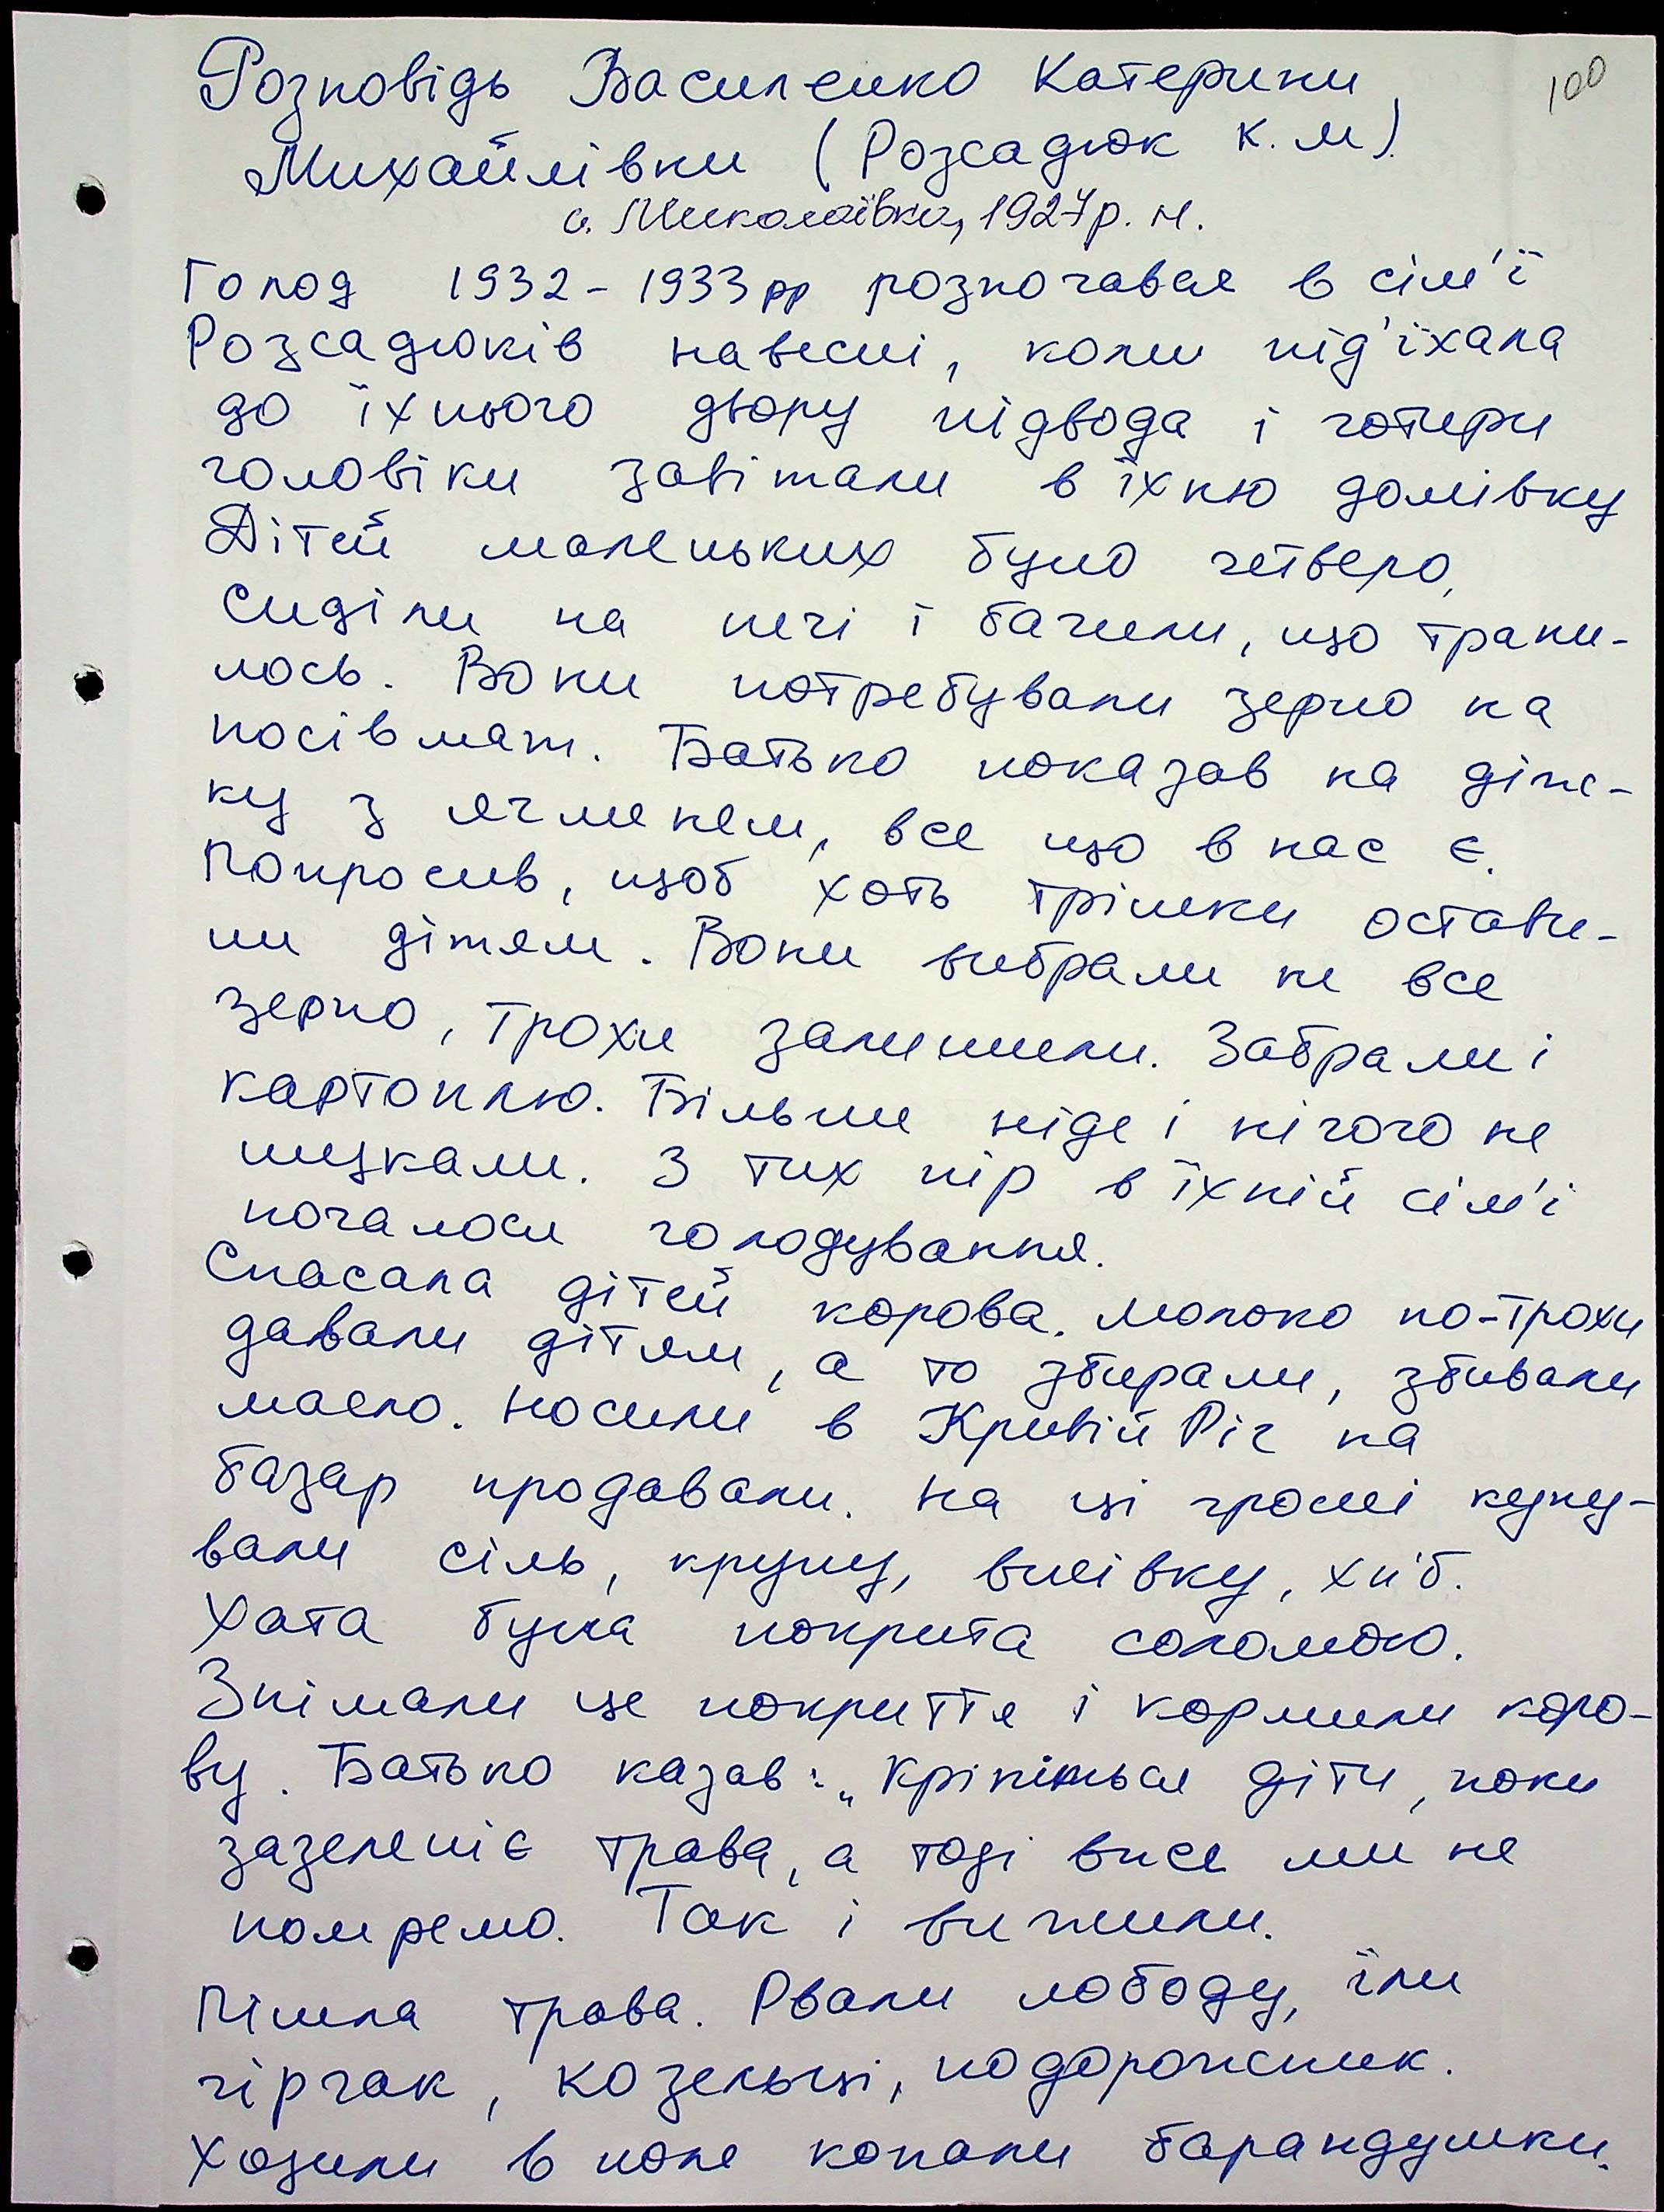 100
Розповідь Василенко Катерини
Михайлівни (Розсадюк К.М).
с. Миколаївка, 1927р. н.
Голод 1932-1933рр розпочався в сім'ї
Розсадюків навесні, коли під'їхала
до їхнього двору підвода і чотири
чоловіки завітали в їхню домівку
Дітей маленьких було четверо,
сиділи на печі і бачили, що трапи-
лось. Вони потребували зерно на
посівмат. Батько показав на діж-
ку з ячменем, все що в нас є.
Попросив, щоб хоть трішки остави-
ли дітям. Вони вибрали не все
зерно, трохи залишили. Забрали і
картоплю. Більше ніде і нічого не
шукали. З тих пір в їхній сім'ї
почалося голодування.
Спасала дітей корова. Молоко по-трохи
давали дітям, а то збирали, збивали
масло. Носили в Кривий Ріг на
базар продавали. На ці гроші купу-
вали сіль, крупу, висівку, хліб.
Хата була покрита соломою.
Знімали це покриття і кормили коро-
ву. Батько казав: „Кріпіться діти, поки
зазеленіє трава, а тоді висе ми не
помремо. Так і вижили.
Пішла трава. Рвали лободу, їли
гірчак, козельці, подорожник.
Ходили в поле копали барандушки.